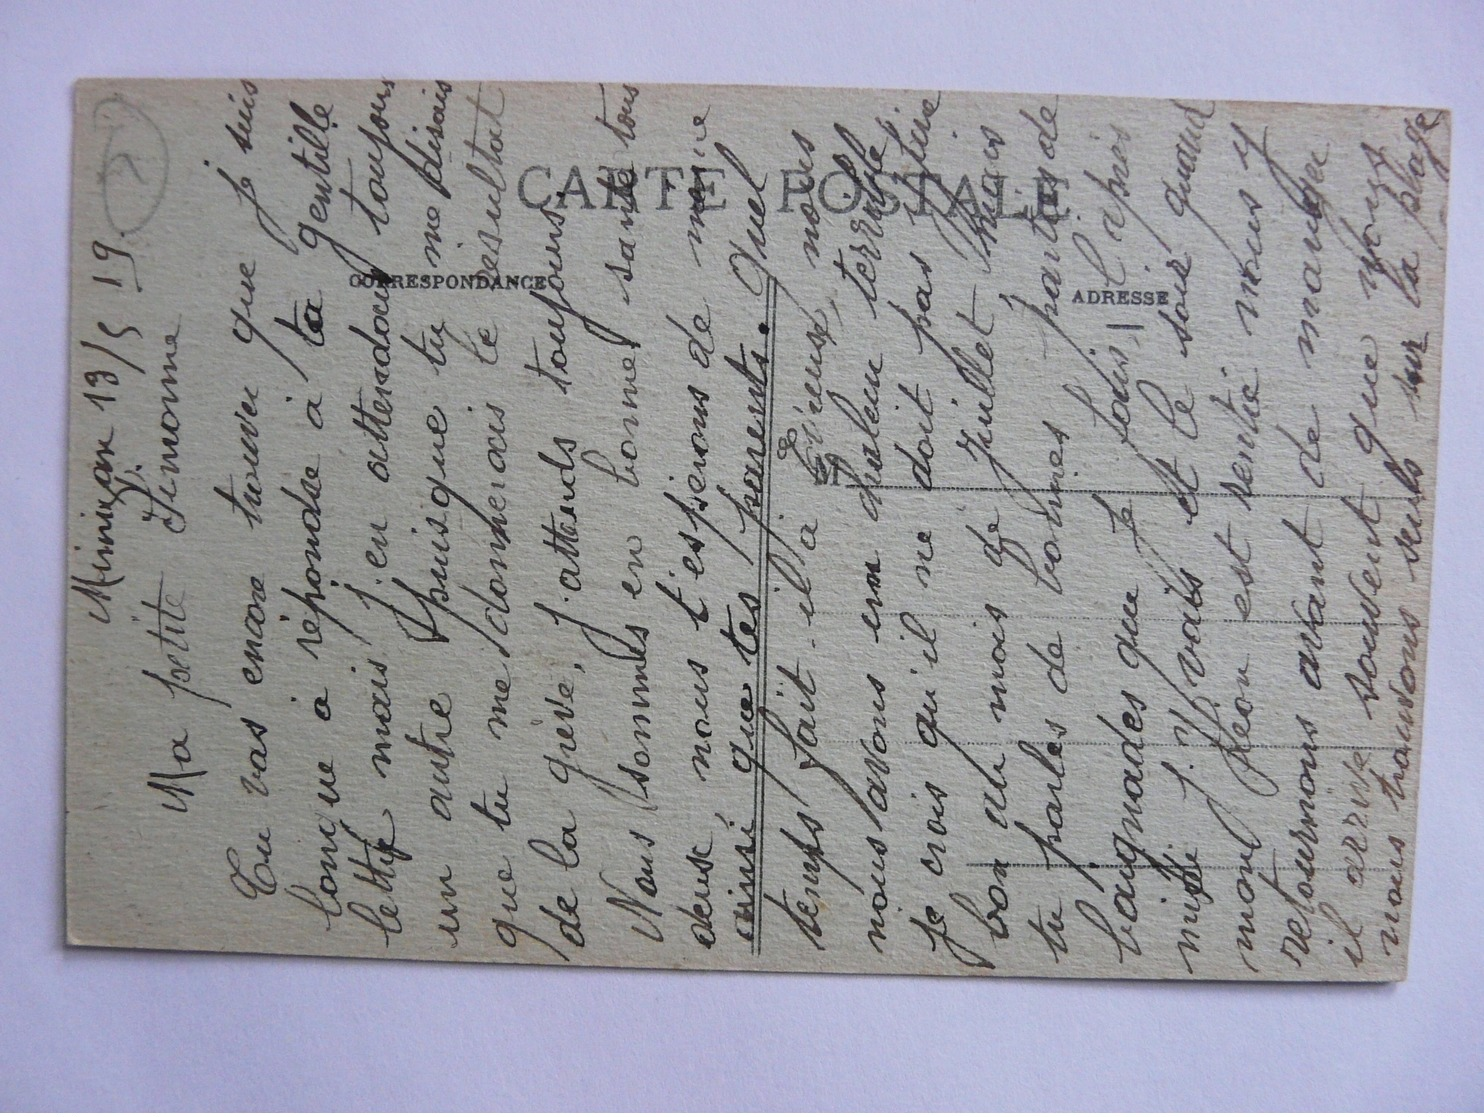 CARTE POSTALE
CORRESPONDANCE
ADRESSE
Mimizan 13/5 19.
Ma petite Simonne
Tu vas encore trouver que je suis
longue à répondre à ta gentille
lettre mais j'en attendais toujours
un autre puisque tu me disais
que tu me donnerais le résultat
de la grève, j'attends toujours.
Nous sommes en bonne santé tous
deux nous t'espérons de même
ainsi que tes parents. Quel
temps fait-il à nous
nous avons une chaleur terrible
je crois qu'il ne doit pas faire
bon au mois de Juillet mais
tu parles de bonnes parties de
baignades que je fais, l'après
midi j'y vais et le soir quand
mon Jean est rentré nous y
retournons avant de manger
il arrive souvent que nous
nous trouvons seuls sur la plage